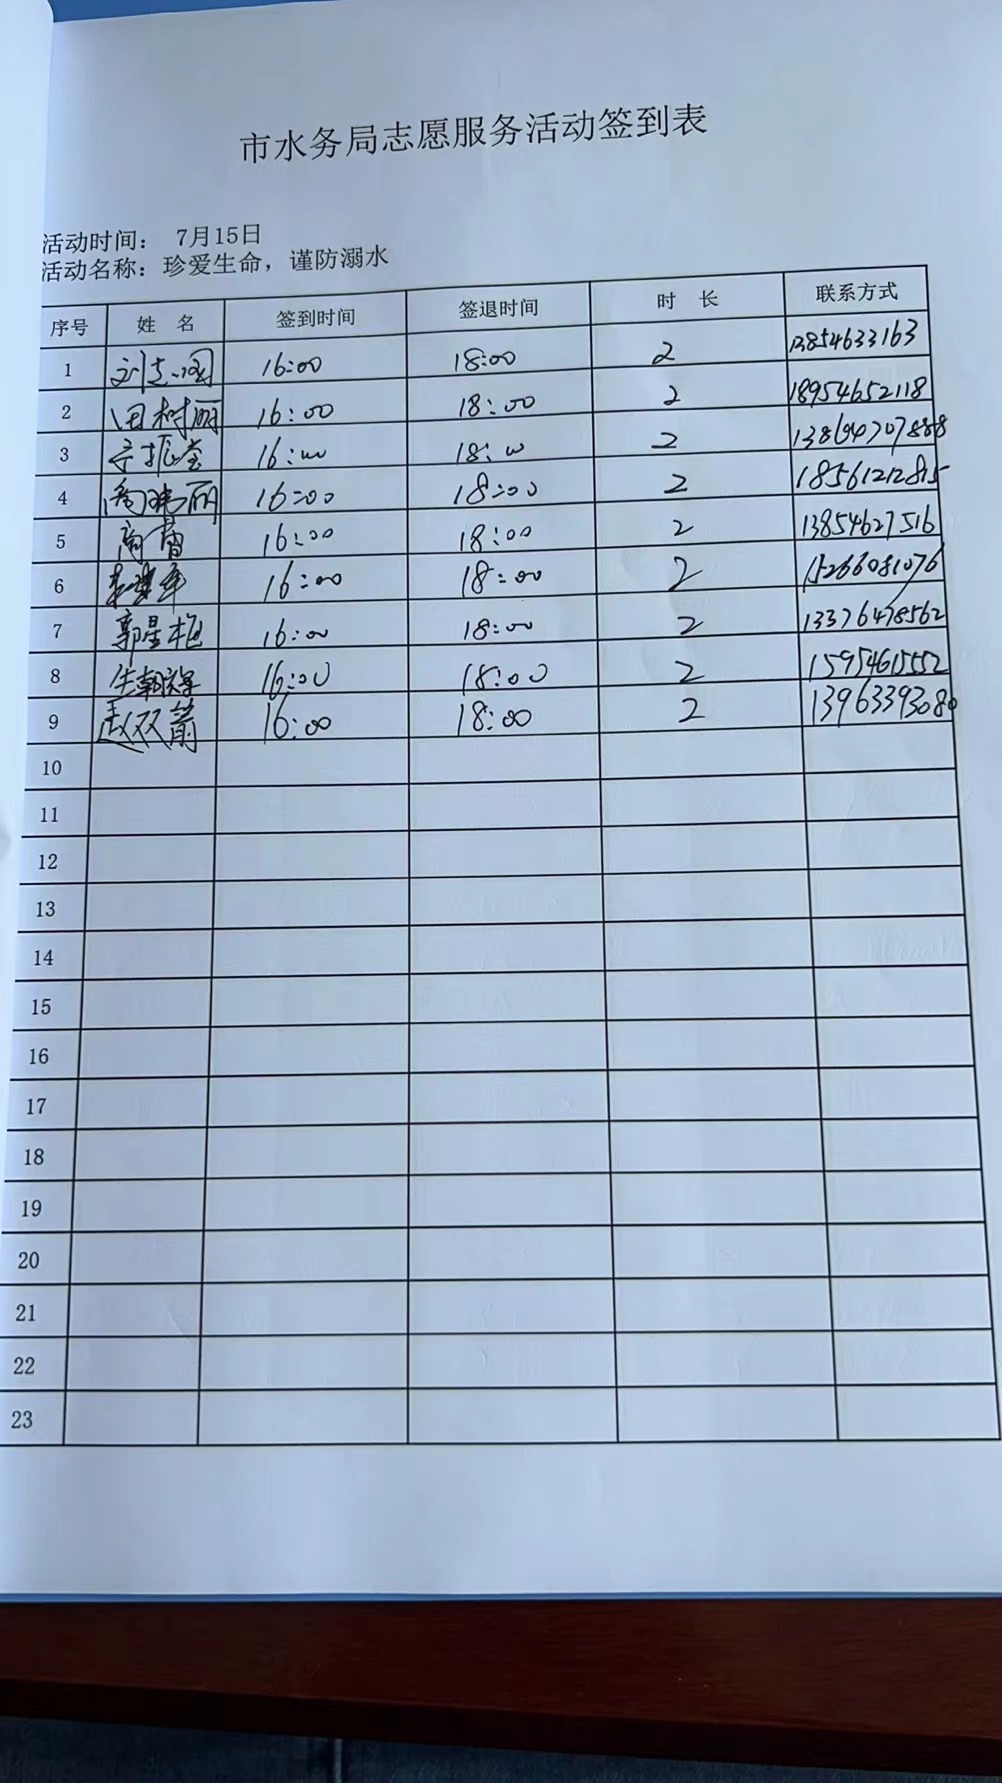 市水务局志愿服务活动签到表
活动时间： 7月15日
活动名称：珍爱生命，谨防溺水
序号 姓 名 签到时间 签退时间 时 长 联系方式
1 16:00 18:00 2 13854633163
2 田树丽 16:00 18:00 2 18954652118
3 16:00 18:00 2
4 16:00 18:00 2
5 商蕾 16:00 18:00 2 13854627516
6 16:00 18:00 2 15266081076
7 郭星柜 16:00 18:00 2 13376478562
8 16:00 18:00 2
9 赵双箭 16:00 18:00 2 13963393080
10
11
12
13
14
15
16
17
18
19
20
21
22
23